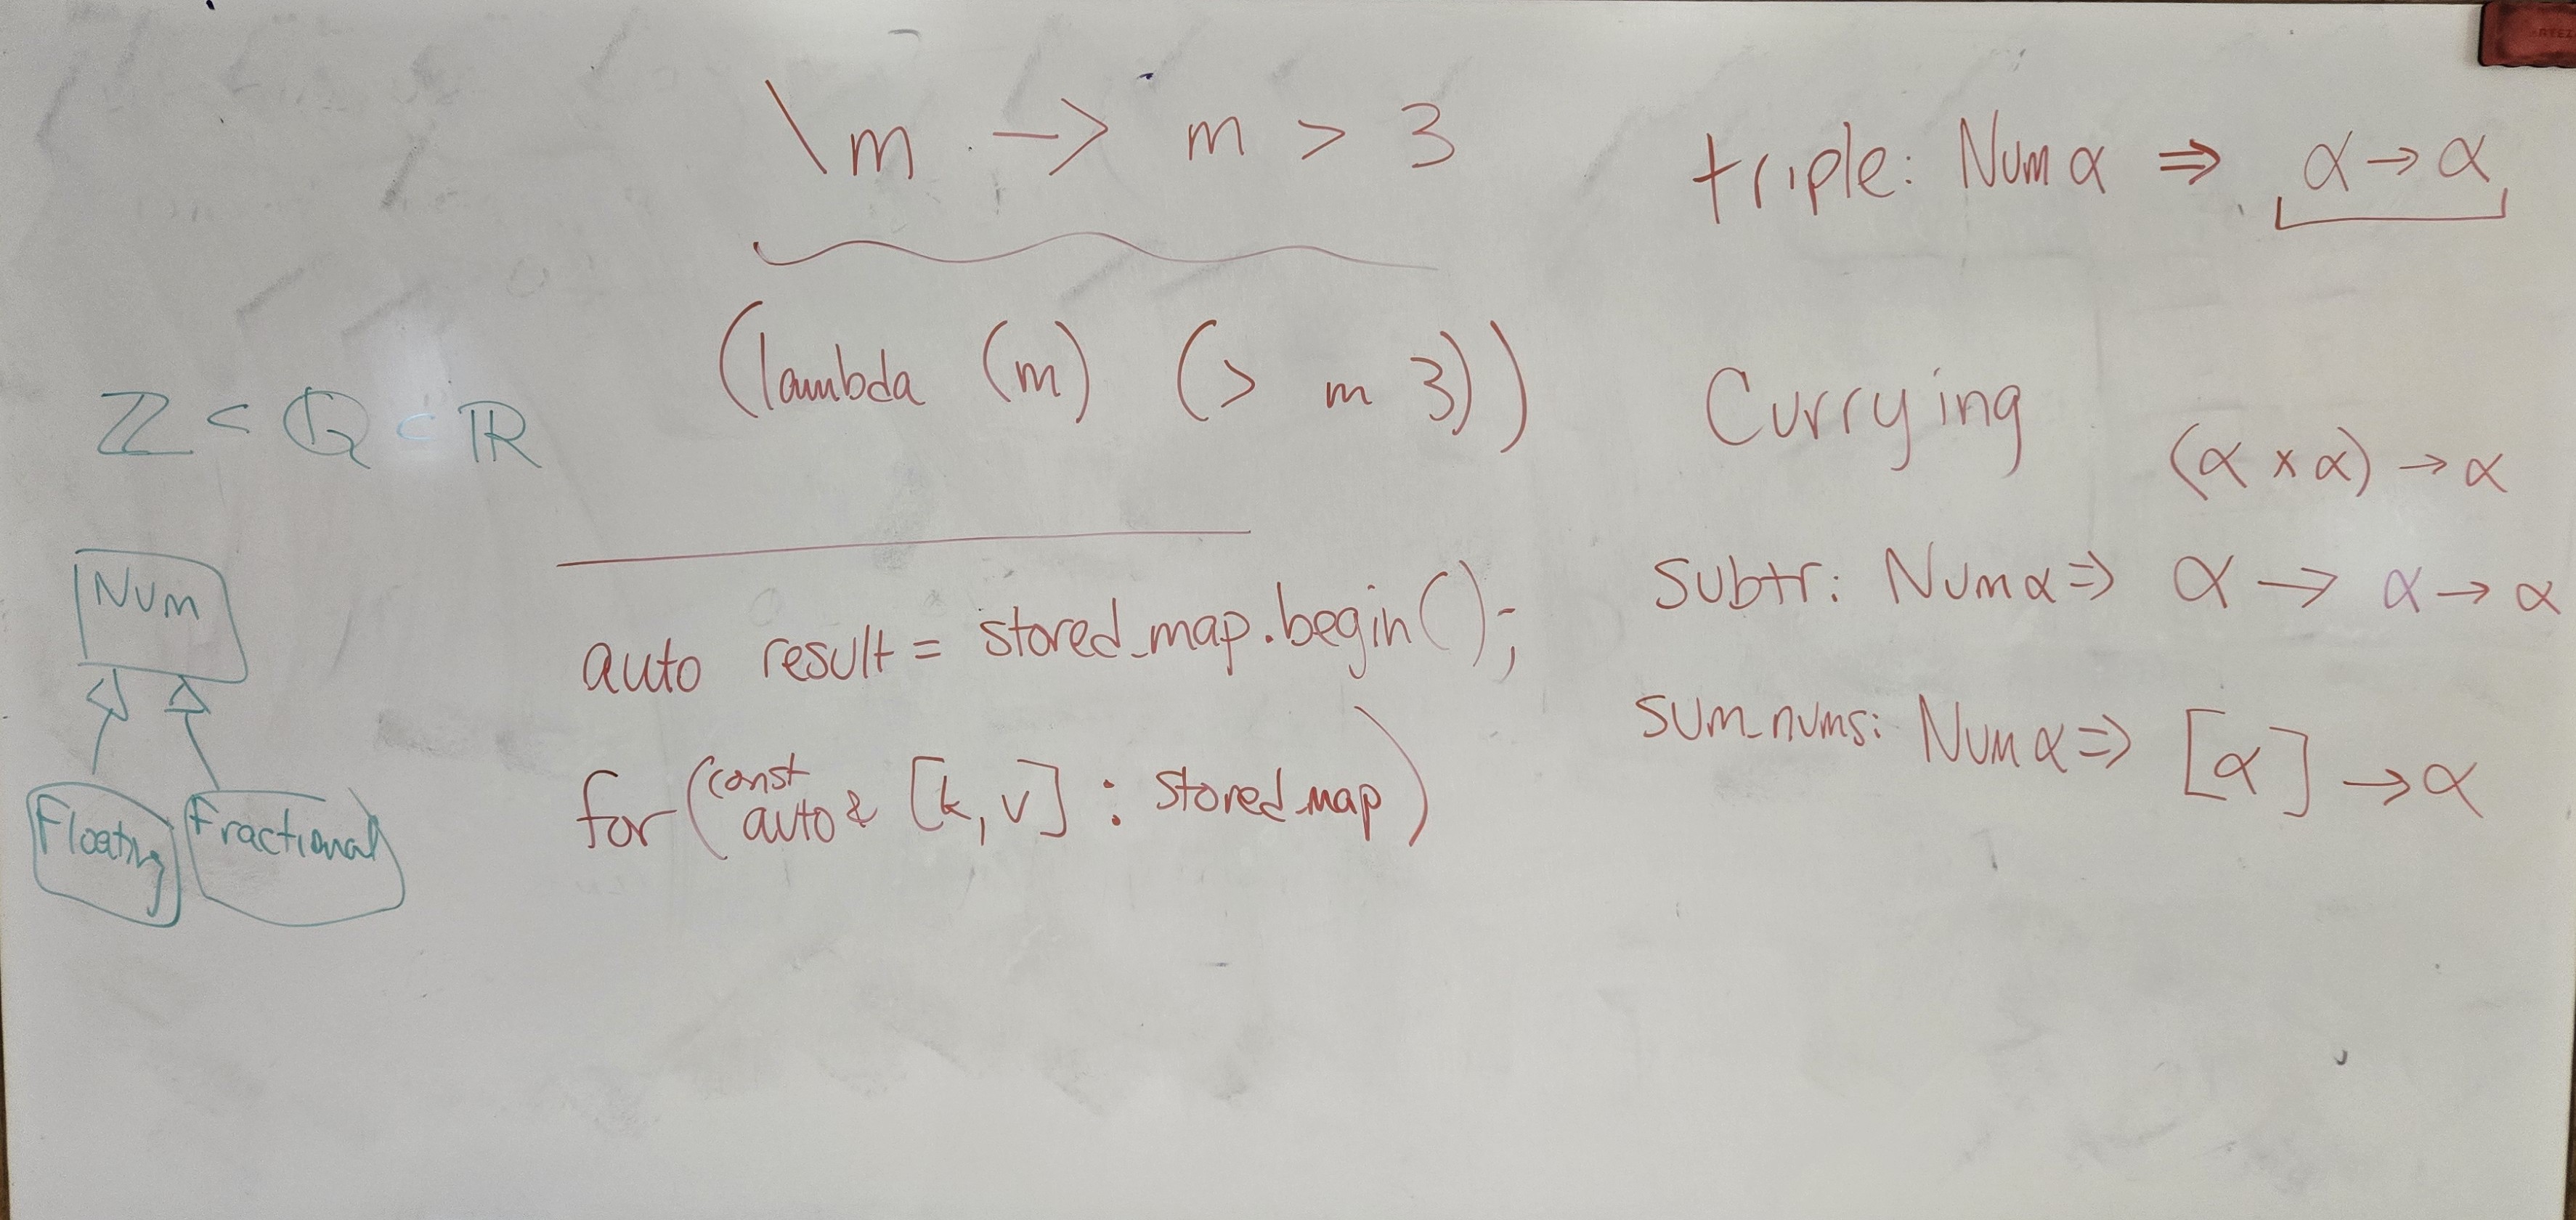 \m -> m > 3
(lambda (m) (> m 3))
ℤ ⊂ ℚ ⊂ ℝ
Num
Floating
Fractional
auto result = stored_map.begin();
for (const auto& [k, v] : stored_map)
triple: Num α ⇒ α → α
Currying
(α × α) → α
subtr: Num α ⇒ α → α → α
sum_nums: Num α ⇒ [α] → α